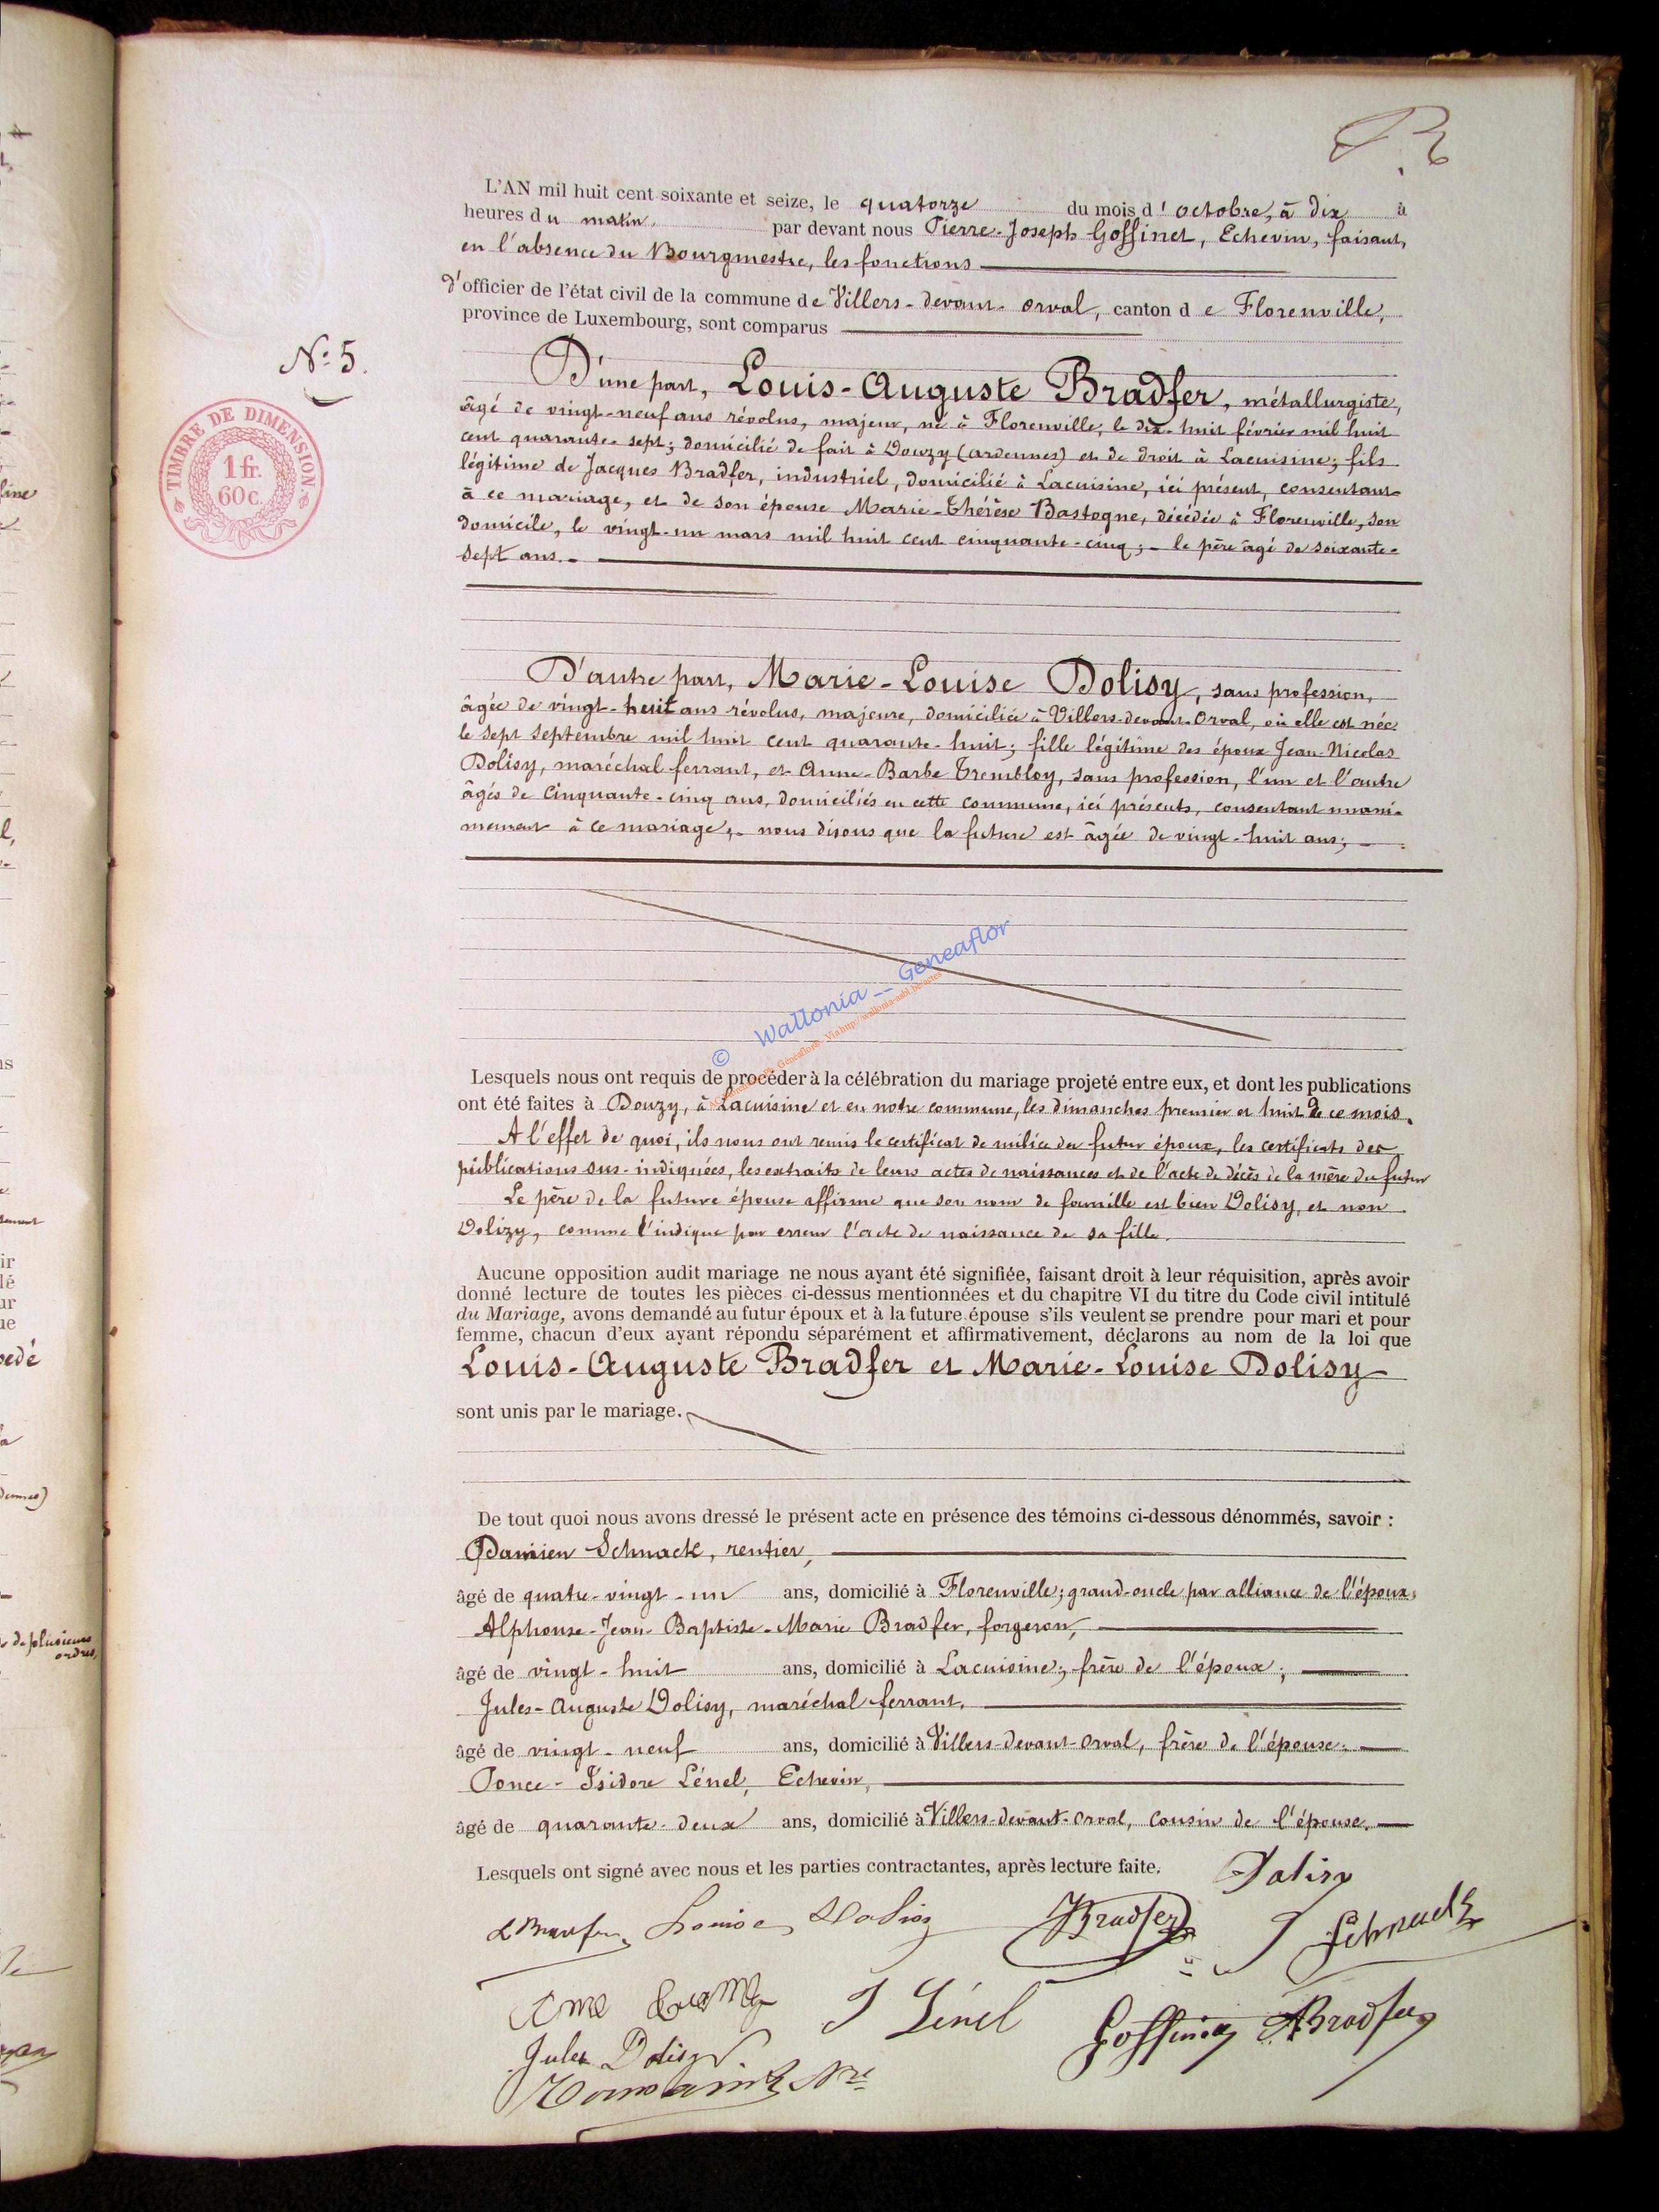 L'AN mil huit cent soixante et seize, le quatorze du mois d'octobre, à dix à
heures du matin, par devant nous Pierre-Joseph Goffinet, Echevin, faisant,
en l'absence du Bourgmestre, les fonctions
d'officier de l'état civil de la commune de Villers-devant-Orval, canton de Florenville,
province de Luxembourg, sont comparus
N° 5.
TIMBRE DE DIMENSION
1 fr.
60 c.
D'une part, Louis-Auguste Bradfer, métallurgiste,
âgé de vingt-neuf ans révolus, majeur, né à Florenville, le dix-huit février mil huit
cent quarante-sept; domicilié de fait à Douzy (ardennes) et de droit à Lacuisine; fils
légitime de Jacques Bradfer, industriel, domicilié à Lacuisine, ici présent, consentant
à ce mariage, et de son épouse Marie-Thérèse Bastogne, décédée à Florenville, son
domicile, le vingt-un mars mil huit cent cinquante-cinq; - le père âgé de soixante-
sept ans.-
D'autre part, Marie-Louise Dolisy, sans profession,
âgée de vingt-huit ans révolus, majeure, domiciliée à Villers-devant-Orval, où elle est née
le sept septembre mil huit cent quarante-huit; fille légitime des époux Jean-Nicolas
Dolisy, maréchal ferrant, et Anne-Barbe Trembloy, sans profession, l'un et l'autre
âgés de cinquante-cinq ans, domiciliés en cette commune, ici présents, consentant unani-
mement à ce mariage;- nous disons que la future est âgée de vingt-huit ans;
© Wallonia -- Geneaflor
Lesquels nous ont requis de procéder à la célébration du mariage projeté entre eux, et dont les publications
ont été faites à Douzy, à Lacuisine et en notre commune, les dimanches premier et huit de ce mois.
A l'effet de quoi, ils nous ont remis le certificat de milice du futur époux, les certificats des
publications sus-indiquées, les extraits de leurs actes de naissances et de l'acte de décès de la mère du futur
Le père de la future épouse affirme que son nom de famille est bien Dolisy, et non
Dolizy, comme l'indique par erreur l'acte de naissance de sa fille.
Aucune opposition audit mariage ne nous ayant été signifiée, faisant droit à leur réquisition, après avoir
donné lecture de toutes les pièces ci-dessus mentionnées et du chapitre VI du titre du Code civil intitulé
du Mariage, avons demandé au futur époux et à la future épouse s'ils veulent se prendre pour mari et pour
femme, chacun d'eux ayant répondu séparément et affirmativement, déclarons au nom de la loi que
Louis-Auguste Bradfer et Marie-Louise Dolisy
sont unis par le mariage.
De tout quoi nous avons dressé le présent acte en présence des témoins ci-dessous dénommés, savoir :
Damien Schnack, rentier,
âgé de quatre-vingt-un ans, domicilié à Florenville; grand-oncle par alliance de l'époux;
Alphonse-Jean-Baptiste-Marie Bradfer, forgeron,
âgé de vingt-huit ans, domicilié à Lacuisine; frère de l'époux;
Jules-Auguste Dolisy, maréchal ferrant,
âgé de vingt-neuf ans, domicilié à Villers-devant-Orval, frère de l'épouse;
Ponce-Isidore Lénel, Echevin,
âgé de quarante-deux ans, domicilié à Villers-devant-Orval, cousin de l'épouse.
Lesquels ont signé avec nous et les parties contractantes, après lecture faite.
Dolisy
L Bradfer Louise Dolisy JBradfer Schnack
I Lénel
Goffinet ABradfer
Jules Dolisy